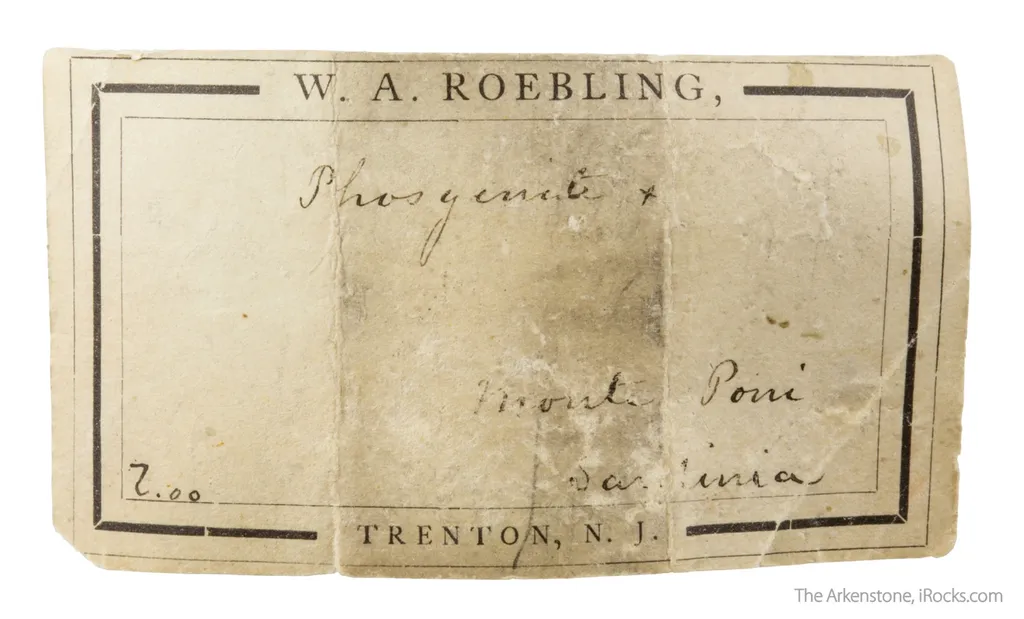 W. A. ROEBLING,
Phosgenite x
Monte Poni
Sardinia
7.00
TRENTON, N. J.
The Arkenstone, iRocks.com